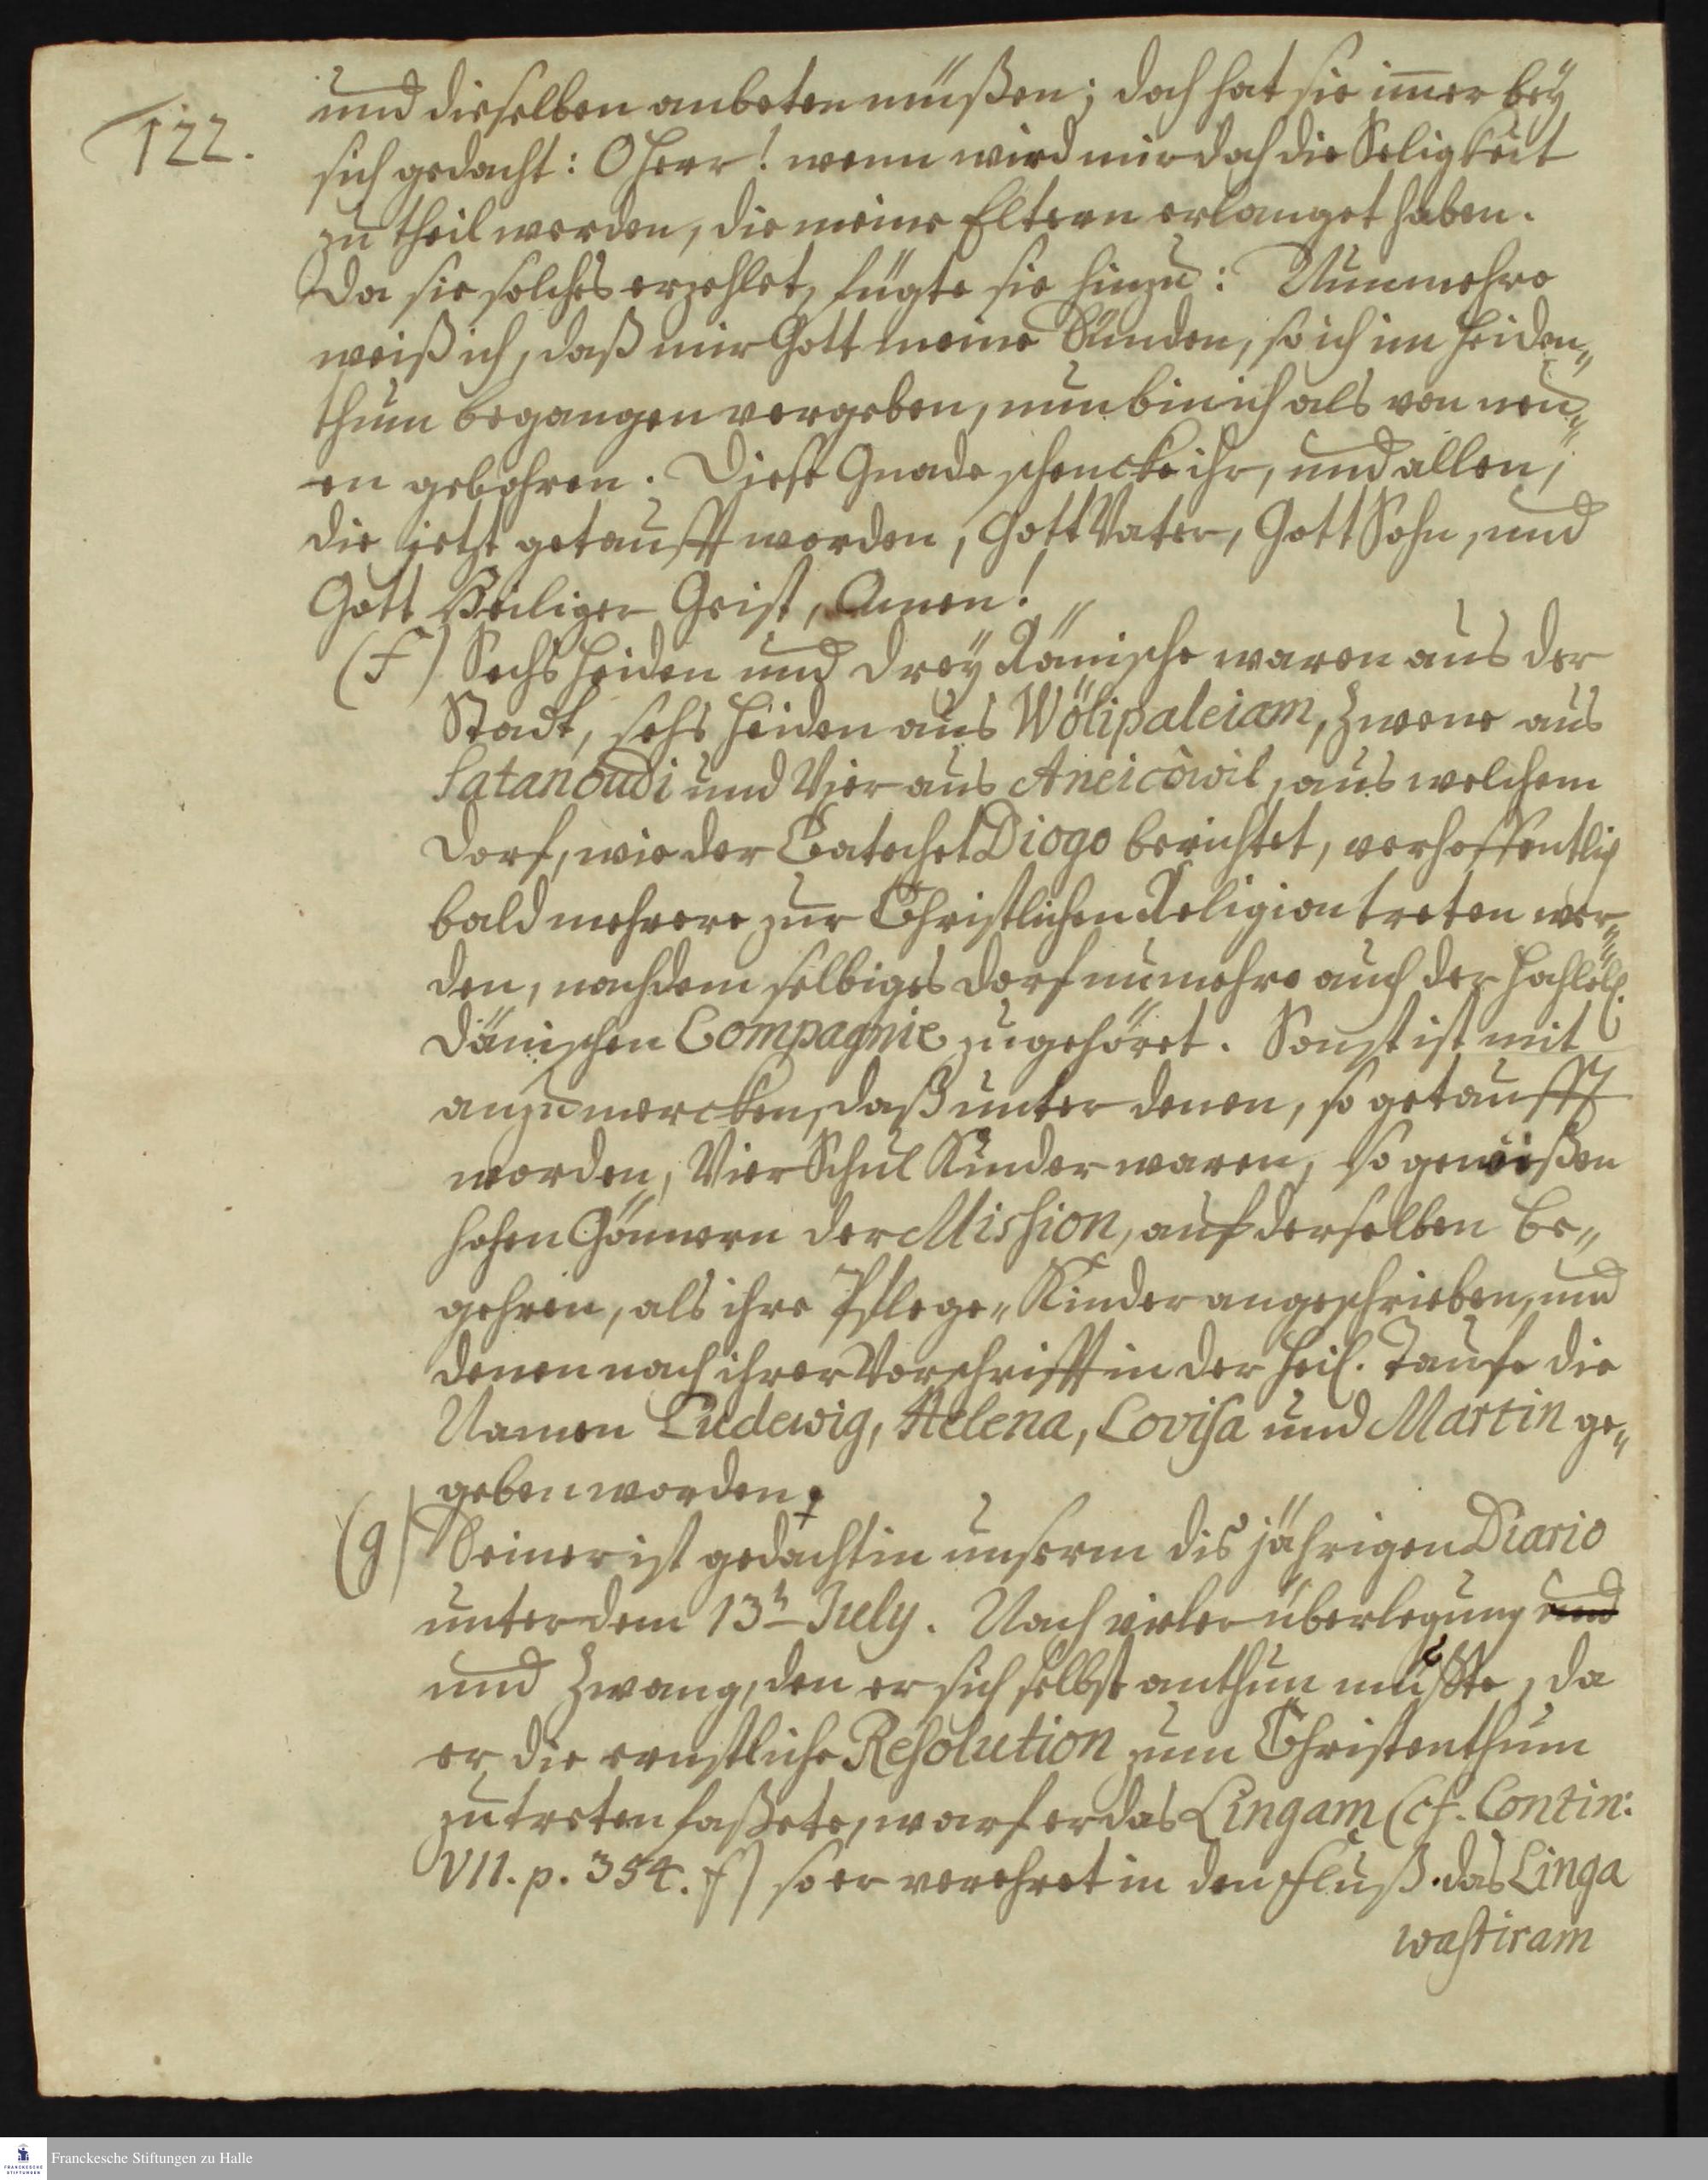 122.
und dieselben anbeten müßen; doch hat sie im̅er bey
sich gedacht: O Herr! wenn wird mir doch die Seligkeit
zu theil werden, die meine Eltern erlanget haben.
Da sie solches erzehlet, fügte sie hinzu: Nunmehro
weiß ich, daß mir Gott meine Sünden, so ich im Heiden„
thum begangen vergeben, nun bin ich als von neu„
en gebohren. Diese Gnade schencke ihr, und allen,
die jetzt getaufft worden, Gott Vater, Gott Sohn, und
Gott Heiliger Geist, Amen!
(f) Sechs Heiden und drey Römische waren aus der
Stadt, sechs Heiden aus Wölipaleiam, Zwene aus
Satanoudi und Vier aus Aneicòwil, aus welchem
Dorf, wie der Catechet Diogo berichtet, verhoffentlich
bald mehrere zur Christlichen Religion treten wer„
den, nachdem selbiges Dorf nunmehro auch der Hochlöbl.
Dänischen Compagnie zugehöret. Sonst ist mit
anzumercken, daß unter denen, so getaufft
worden, Vier Schul Kinder waren, so gewißen
hohen Gönnern der Mission, auf derselben Be„
gehren, als ihre Pflege„Kinder angeschrieben, und
denen nach ihrer Vorschrifft in der Heil. Taufe die
Namen Ludewig, Helena, Lovisa und Martin ge„
geben worden.
(g) Seiner ist gedacht in unserm disjährigen Diario
unter dem 13n July. Nach vieler überlegung und
und Zwang, den er sich selbst anthun muste, da
er die ernstliche Resolution zum Christenthum
zu treten faßete, warf er das Lingam (cf. Contin:
VII. p. 354. f) so er verehret in den Fluß. das Linga
wastiram
Franckesche Stiftungen zu Halle